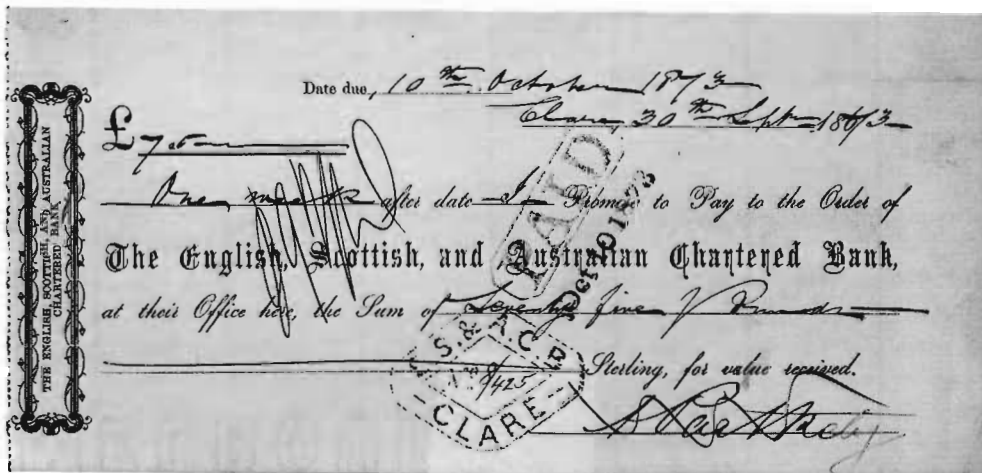 THE ENGLISH, SCOTTISH, AND AUSTRALIAN
CHARTERED BANK
Date due, 10th October 1873
Clare, 30th Sept 1873
£75
One after date I Promise to Pay to the Order of
The English, Scottish, and Australian Chartered Bank,
at their Office here, the Sum of Seventy five Pounds
Sterling, for value received.
PAID
Oct 101873
S. & A. C. B.
8/425
CLARE